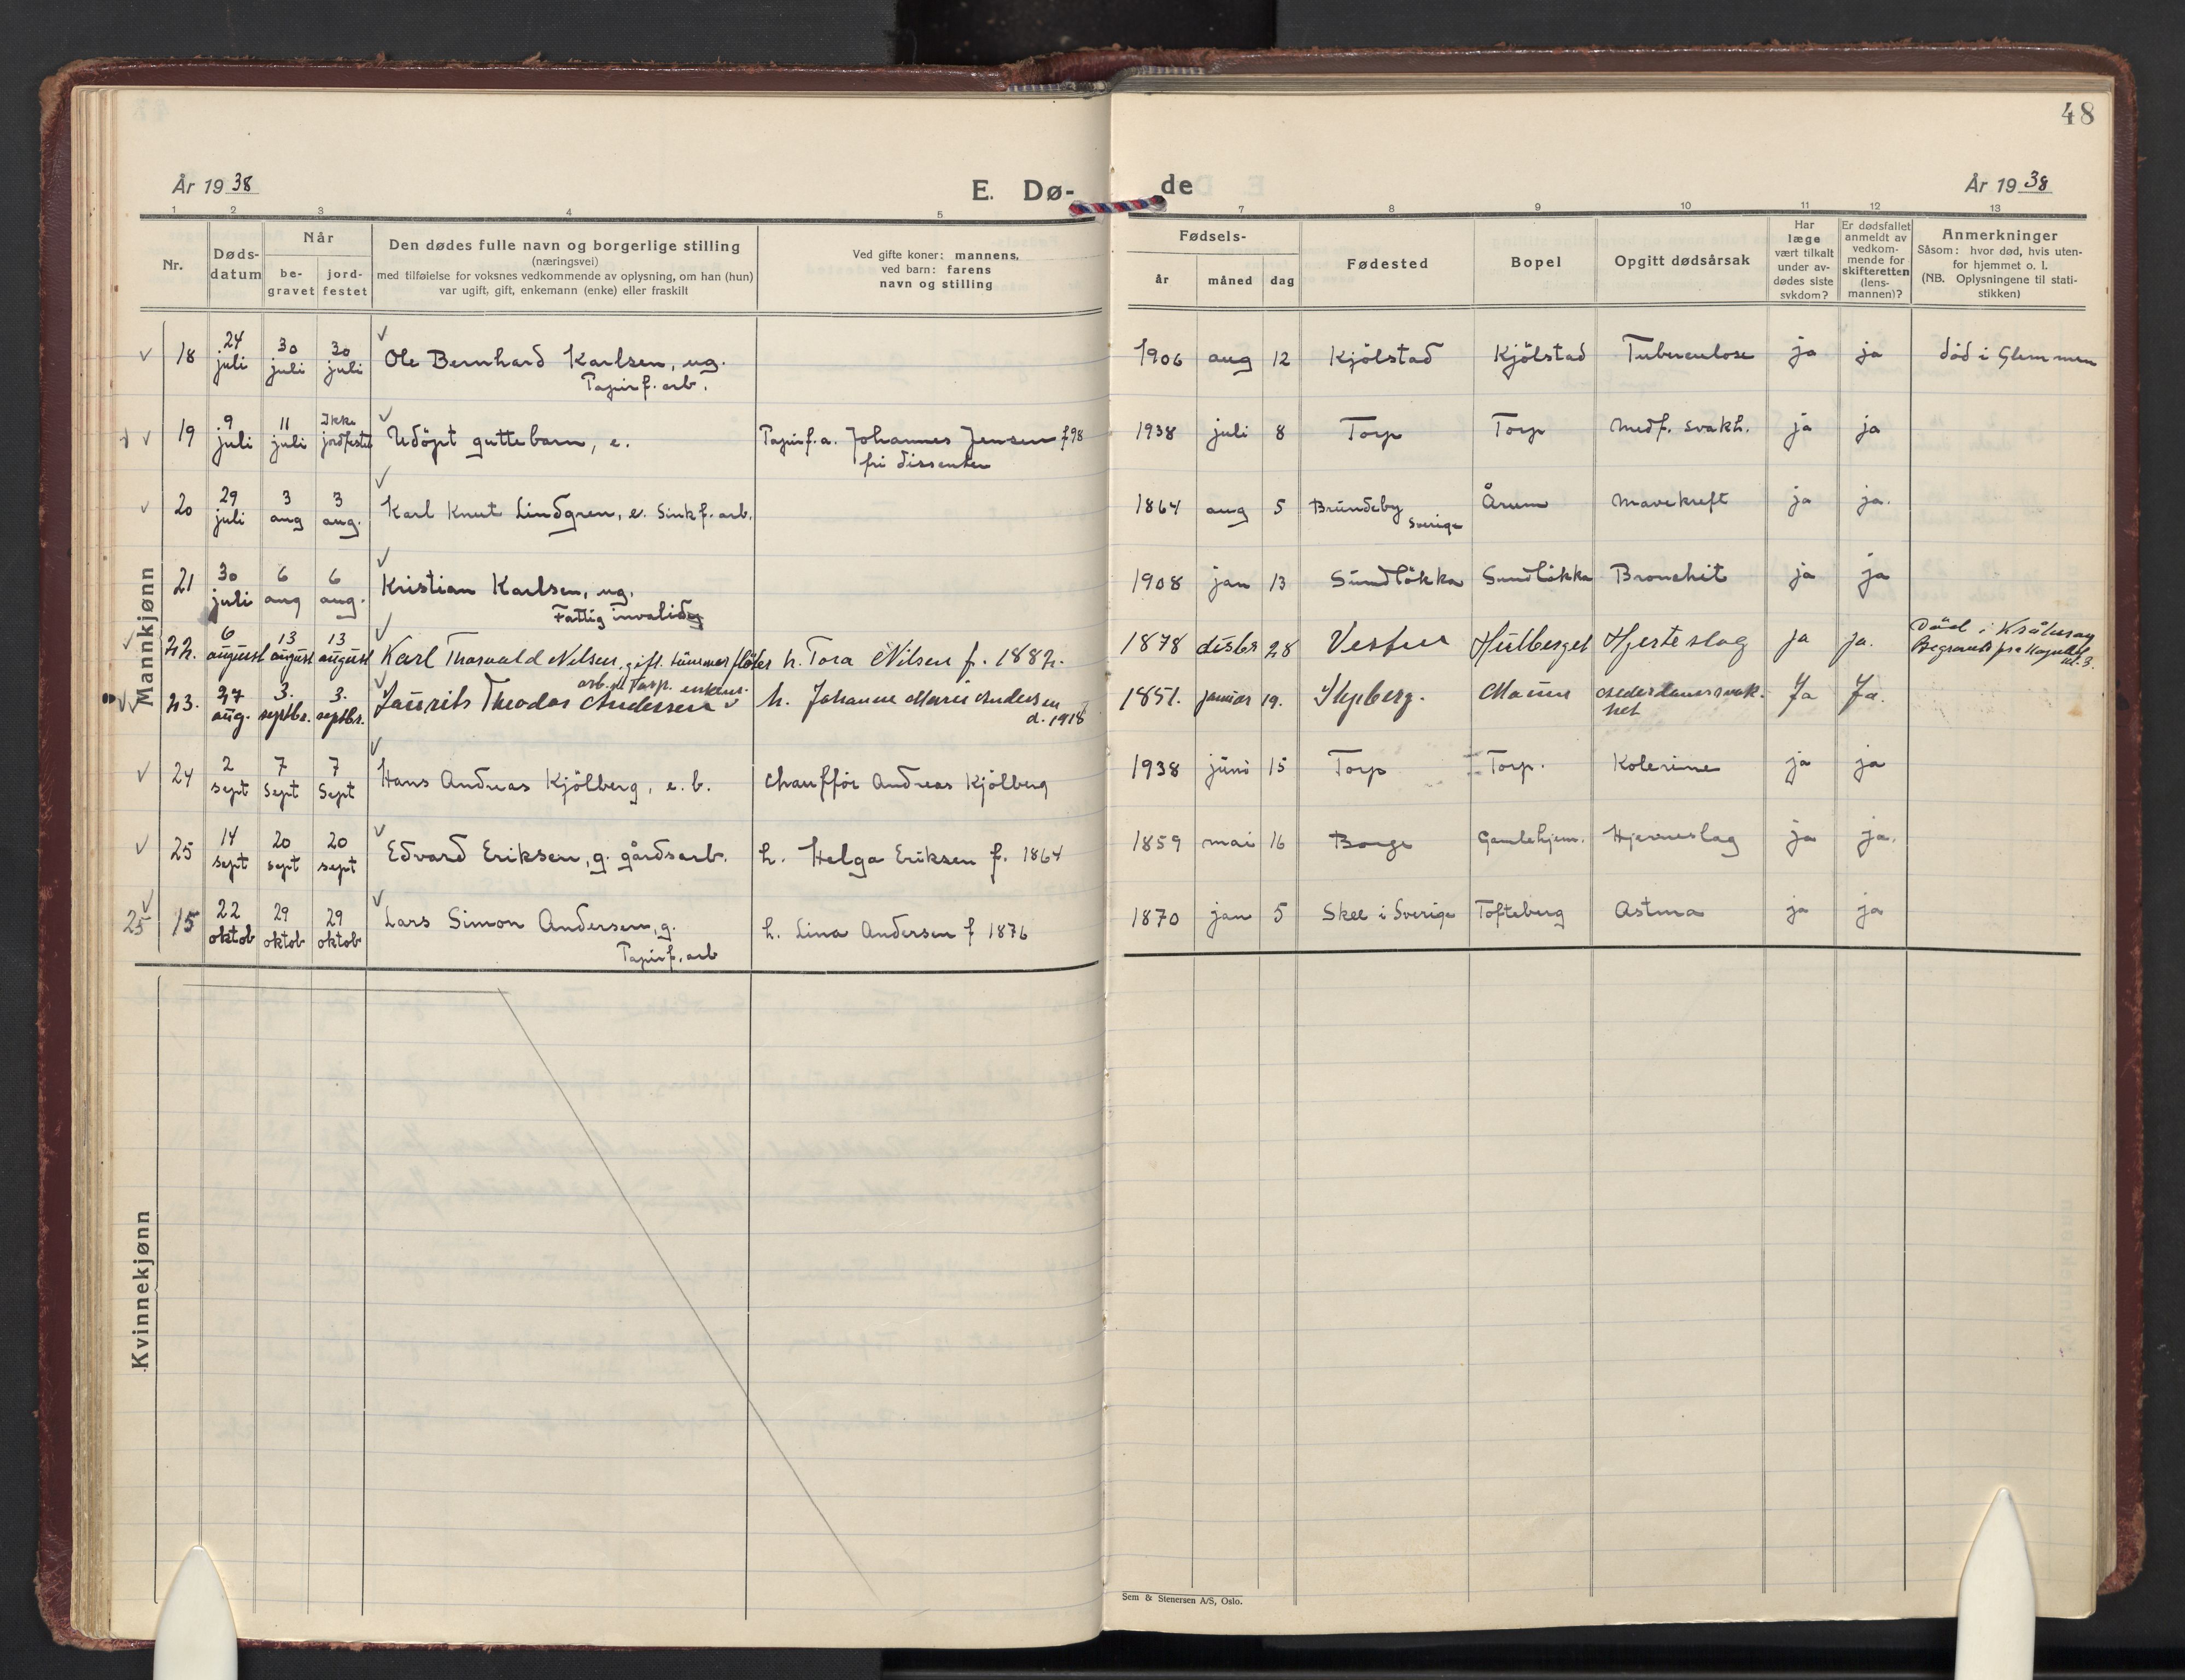 48
År 1938
E. Dø-
de
År 1938
1 2 3 4 5
7 8 9 10 11 12 13
Nr.
Døds-
datum
Når
be-
gravet
jord-
festet
Den dødes fulle navn og borgerlige stilling
(næringsvei)
med tilføielse for voksnes vedkommende av oplysning, om han (hun)
var ugift, gift, enkemann (enke) eller fraskilt
Ved gifte koner: mannens,
ved barn: farens
navn og stilling
Fødsels-
år måned dag
Fødested
Bopel
Opgitt dødsårsak
Har
læge
vært tilkalt
under av-
dødes siste
sykdom?
Er dødsfallet
anmeldt av
vedkom-
mende for
skifteretten
(lens-
mannen)?
Anmerkninger
Såsom: hvor død, hvis uten-
for hjemmet o. l.
(NB. Oplysningene til stati-
stikken)
Mannkjønn
18 24 juli 30 juli 30 juli Ole Bernhard Karlsen, ug. 1906 aug 12 Kjölstad Kjölstad Tuberculose ja ja död i Glemmen
Papirf. arb.
19 9 juli 11 juli Ikke jordfestet Udöpt guttebarn, e. Papirf. a. Johannes Jensen f 98 1938 juli 8 Torp Torp Medf. svakh. ja ja
fri dissenter
20 29 juli 3 aug 3 aug. Karl Knut Lindgren, e. Sinkf. arb. 1864 aug 5 Brundeby Årum Mavekreft ja ja.
Sverige
21 30 juli 6 aug 6 aug. Kristian Karlsen, ug. 1908 jan 13 Sundlökka Sundlökka Bronchit ja ja
Fattig invalid
22. 6 august 13 august 13 august Karl Thorvald Nilsen, gift. tömmerfløter h. Tora Nilsen f. 1882. 1878 desbr 28 Hulberget Hjerteslag ja ja. Död i
Begravet fra kapellet
kl. 3.
23. 27 aug. 3. septbr. 3. septbr. Laurits Theodor Andersen h. Johanne Marie Andersen 1851. januar 19. Ja Ja.
d. 1918
24 2 sept 7 Sept 7 Sept Hans Andreas Kjölberg, e. b. Chaufför Andreas Kjölberg 1938 juni 15 Torp Torp. Kolerine ja ja
25 14 sept 20 sept 20 sept Edvard Eriksen, g. gårdsarb. h. Helga Eriksen f. 1864 1859 mai 16 Borge Gamlehjem. Hjerneslag ja ja.
25 15 22 oktob 29 oktob 29 oktob Lars Simon Andersen, g. h. Lina Andersen f 1876 1870 jan 5 Skee i Sverige Tofteberg Astma ja ja
Papirf. arb
Kvinnekjønn
Sem & Stenersen A/S, Oslo.